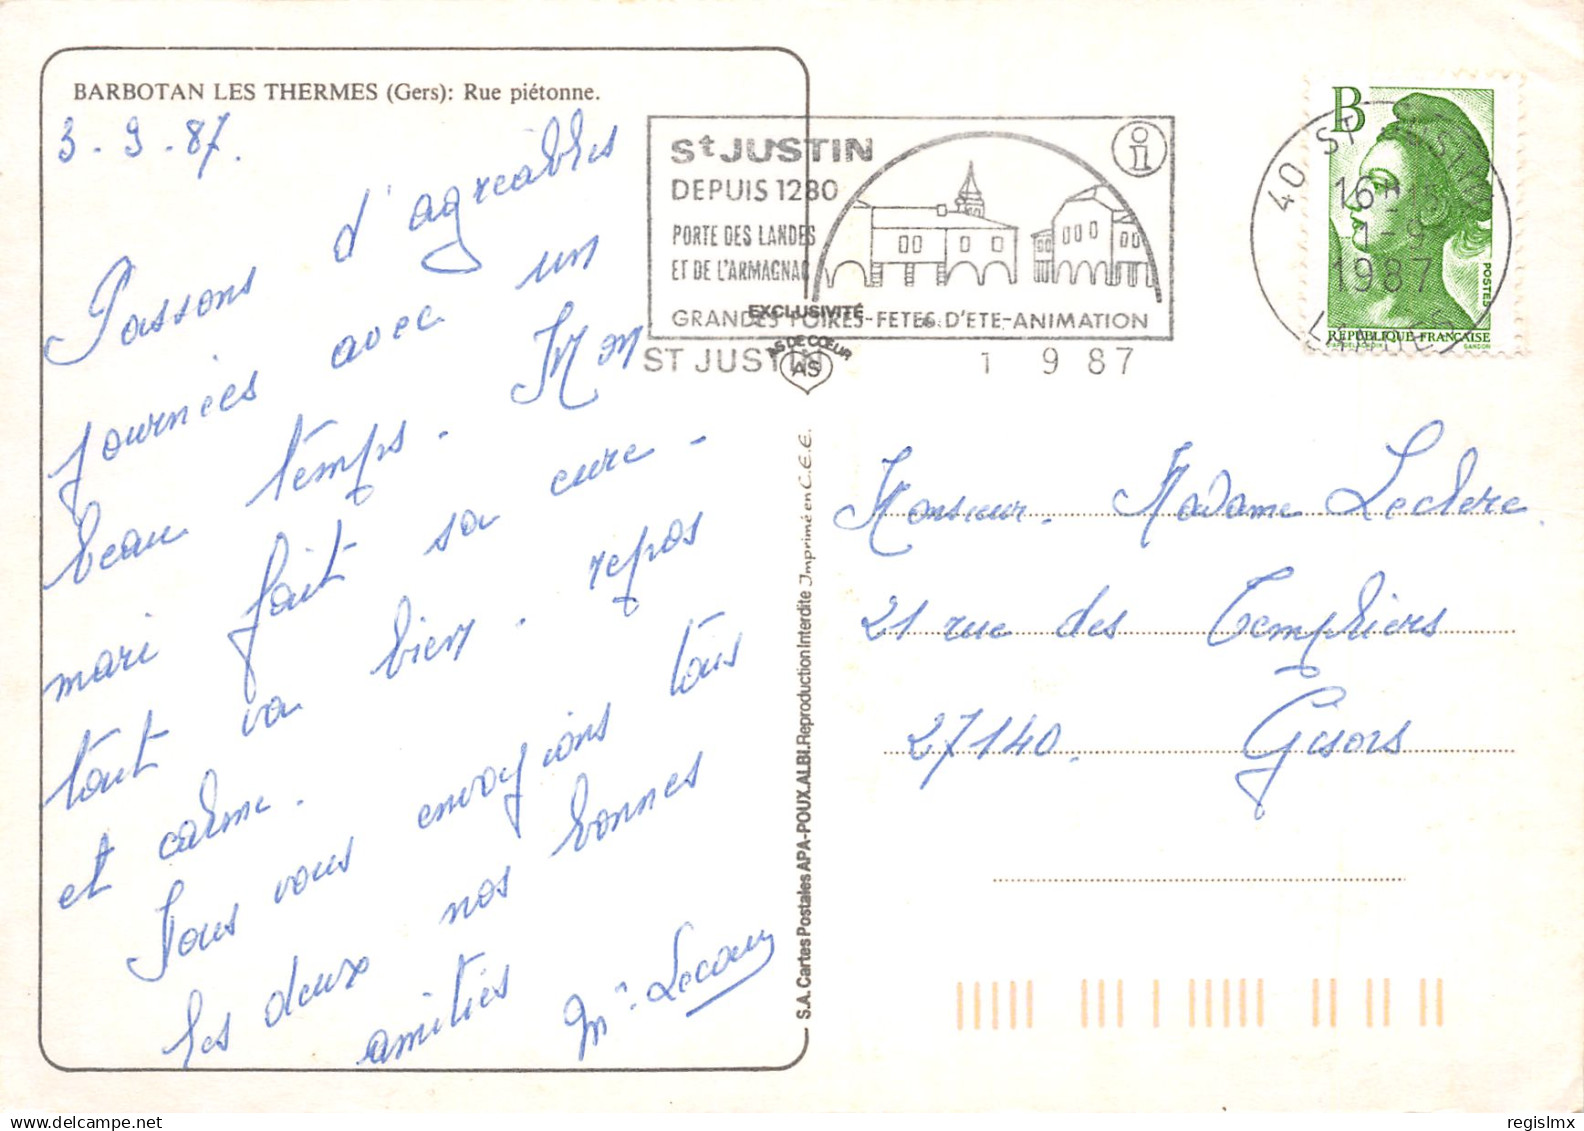 BARBOTAN LES THERMES (Gers): Rue piétonne.
3 - 9 - 87.
Passons d'agréables
journées avec un
beau temps - Mon
mari fait sa cure -
tout va bien - repos
et calme.
Vous envoyions tous
les deux nos bonnes
amitiés
St JUSTIN
DEPUIS 1280
PORTE DES LANDES
ET DE L'ARMAGNAC
GRANDES FOIRES-FETES D'ETE-ANIMATION
ST JUSTIN 1 9 87
i
EXCLUSIVITÉ
AS DE CŒUR
AS
S.A. Cartes Postales APA-POUX.ALBI.Reproduction Interdite Imprimé en C.E.E.
B
POSTES
RÉPUBLIQUE FRANÇAISE
GANDON
40 ST JUSTIN
16H15
1-9
1987
LANDES
Monsieur. Madame Leclerc.
21 rue des Templiers
27140. Gisors
regislmx